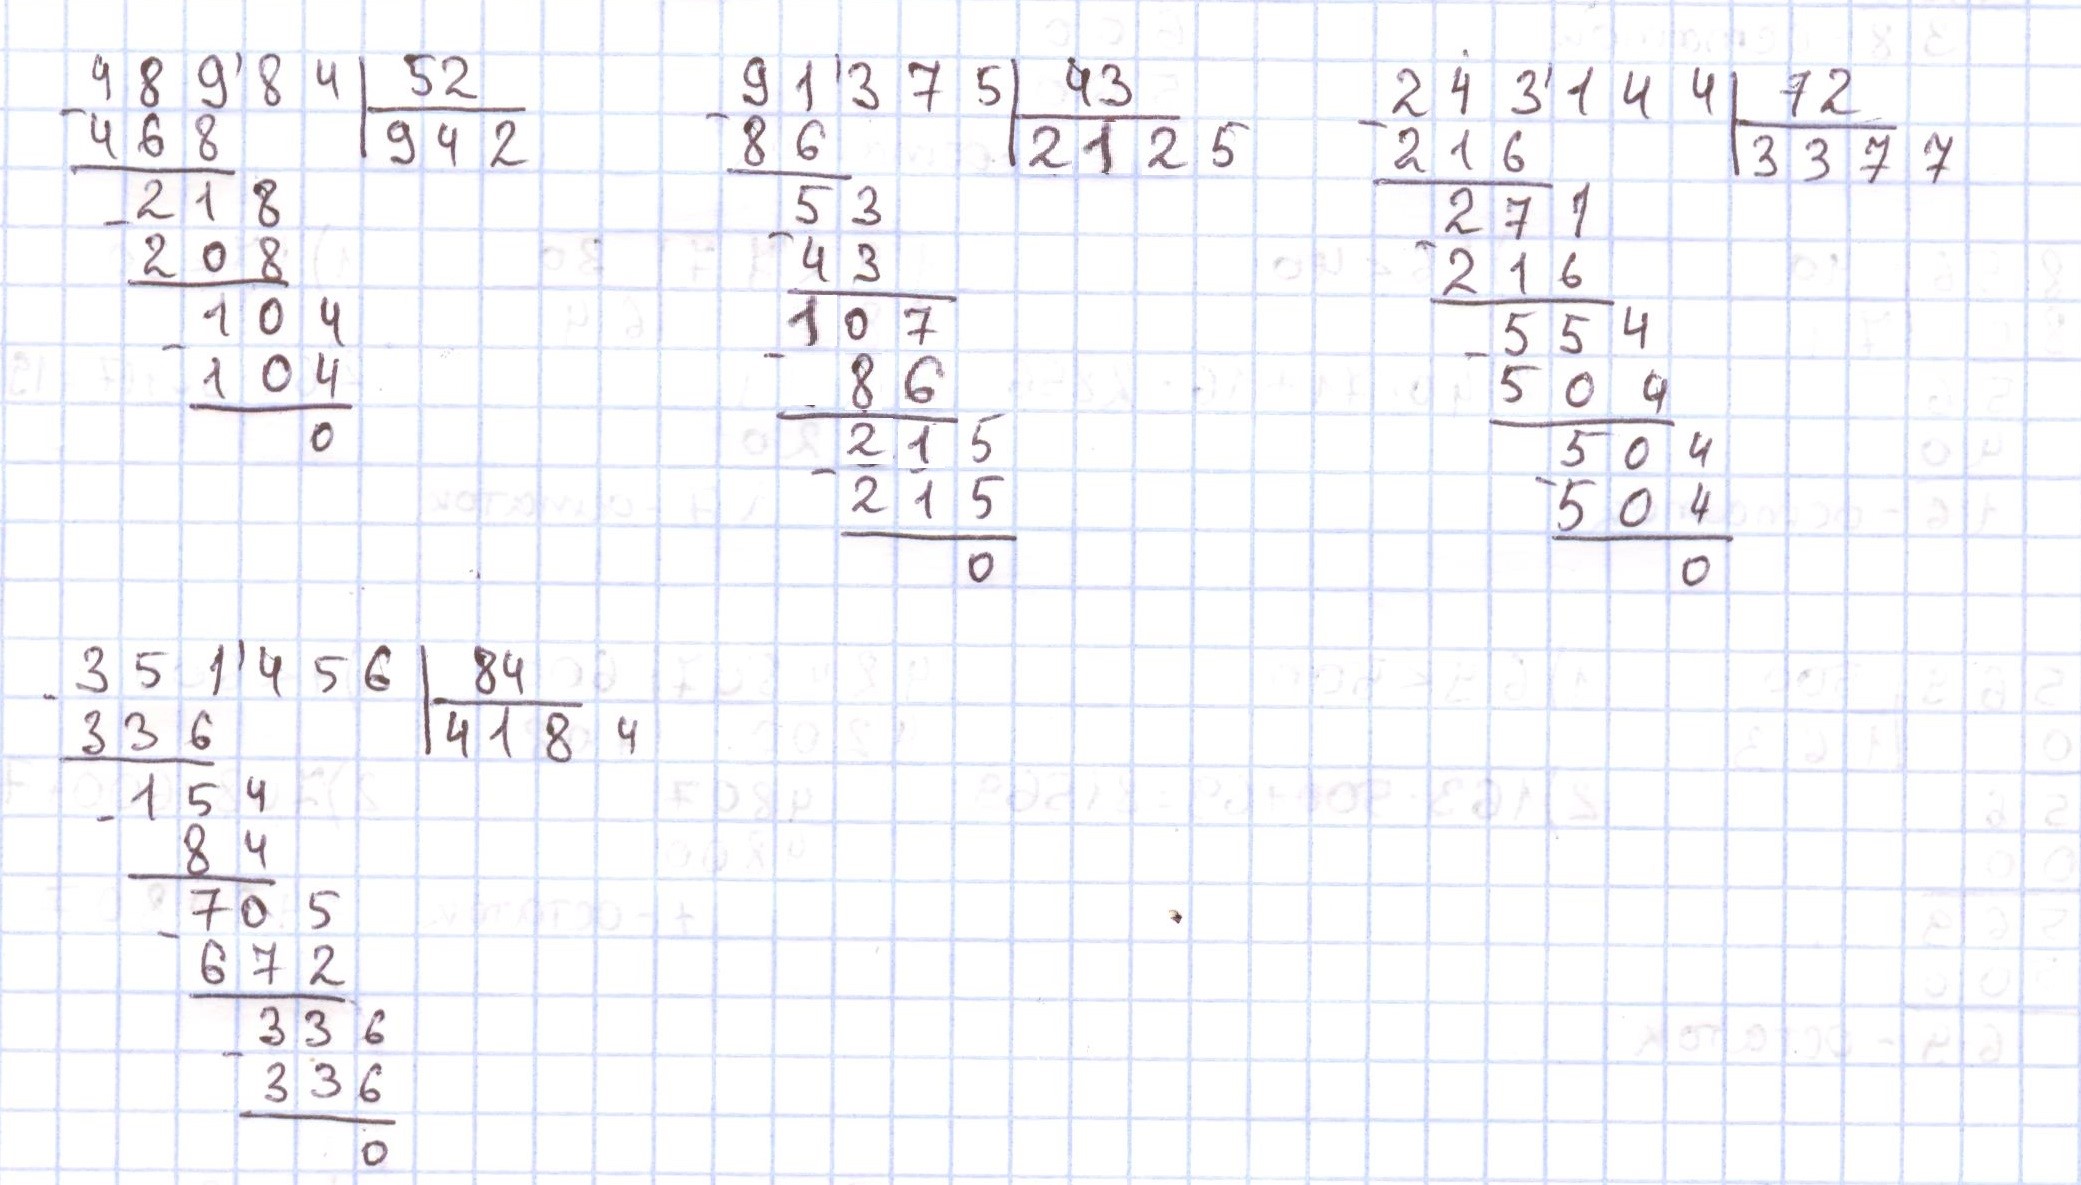 48984 52
468 942
218
208
104
104
0
91375 43
86 2125
53
43
107
86
215
215
0
243144 72
216 3377
271
216
554
504
504
504
0
351456 84
336 4184
154
84
705
672
336
336
0